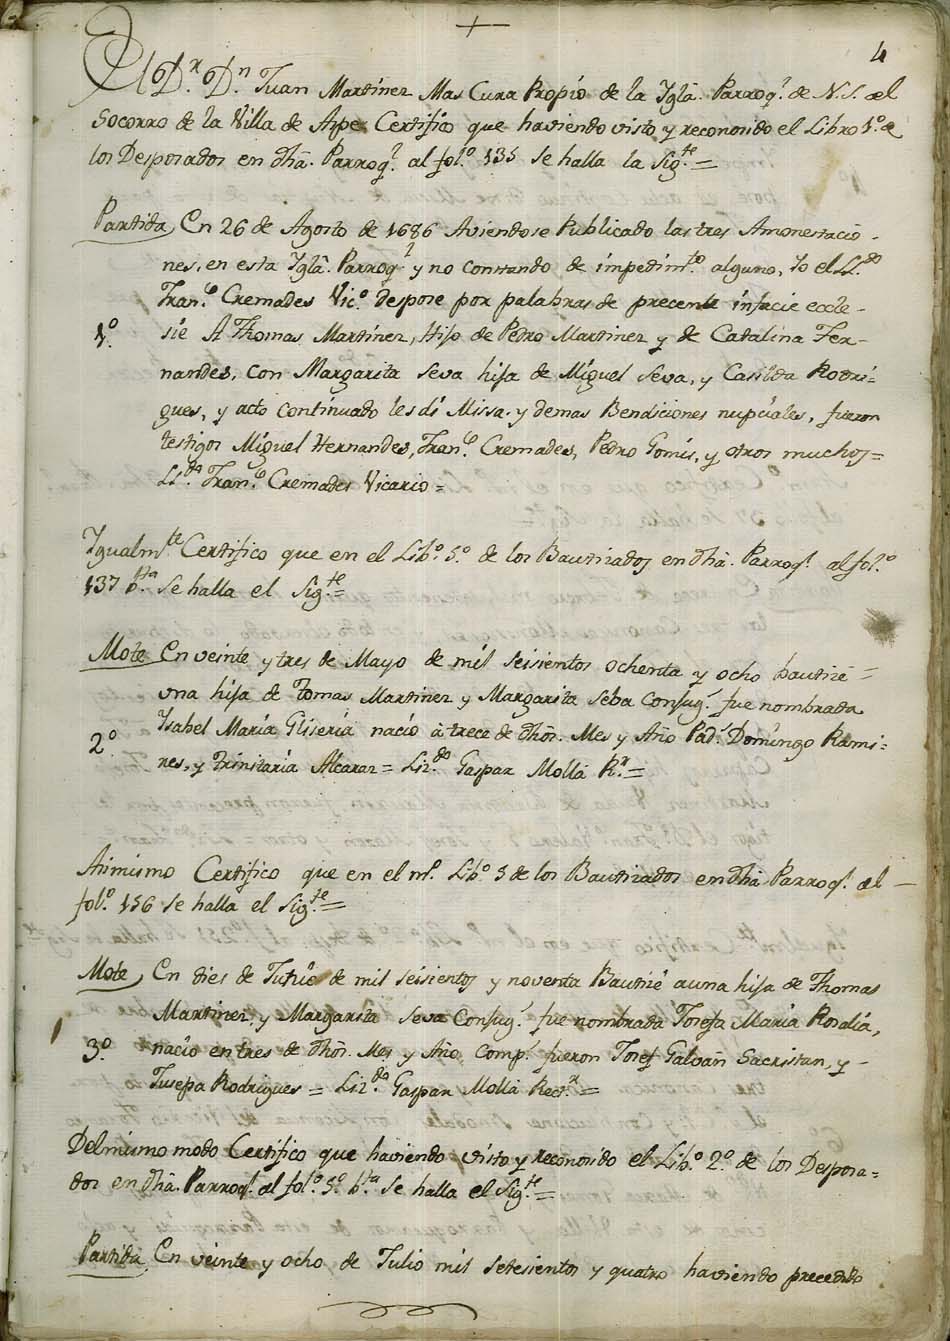 4
El D.r D.n Juan Martinez Mas Cura Propio de la Yglã. Parroq.l de N. S. del
Socorro de la Villa de Aspe Certifico que haviendo visto, y reconosido el Libro 1.º de
los Desposados en dhã. Parroq.l al fol.º 135 se halla la sig.te =
Partida En 26 de Agosto de 1686 Aviendose Publicado las tres Amonestacio-
nes, en esta Yglã. Parroq.l y no constando de impedim.to alguno, Yo el Ll.do
Fran.co Cremades Vic.º despose por palabras de precente infacie eccle-
1.º sie A Thomas Martinez, Hijo de Pedro Martinez y de Catalina Fer-
nandes, con Margarita Seva hija de Miguel Seva, y Casilda Rodri-
gues, y acto continuado les di Missa, y demas Bendiciones nupciales, fueron
testigos Miguel Hernandes, Fran.co Cremades, Pedro Gomis, y otros muchos =
Ll.do Fran.co Cremades Vicario =
Igualm.te Certifico que en el Lib.º 5.º de los Bautizados en dhã. Parroq.l al fol.º
137 b.ta se halla el sig.te =
Mote En veinte y tres de Mayo de mil seisientos ochenta y ocho bautizè =
una hija de Tomas Martinez y Margarita Seba Conjug.s fue nombrada
2.º Ysabel Maria Gliseria naciò à trece de dhõs. Mes y Año Pad.s Domingo Rami-
res, y Trinitaria Alcaraz = Liz.do Gaspar Mollà R.r =
Asimismo Certifico que en el m.º Lib.º 5 de los Bautizados en dhã Parroq.l al —
fol.º 156 se halla el sig.te =
Mote En dies de Junio de mil seisientos y noventa Bautizè a una hija de Thomas
Martinez, y Margarita Seva Conjug.s fue nombrada Josefa Maria Rosalia,
3.º naciò en tres de dhõs. Mes y Año Comp.s fueron Josef Galvañ Sacristan, y -
Jusepa Rodrigues = Liz.do Gaspar Mollà Rect.r =
Del mismo modo Certifico que haviendo visto y reconosido el Lib.º 2.º de los Desposa-
dos en dhã. Parroq.l al fol.º 5.º b.ta se halla el sig.te =
Partida En veinte y ocho de Julio mil setesientos y quatro haviendo precedido